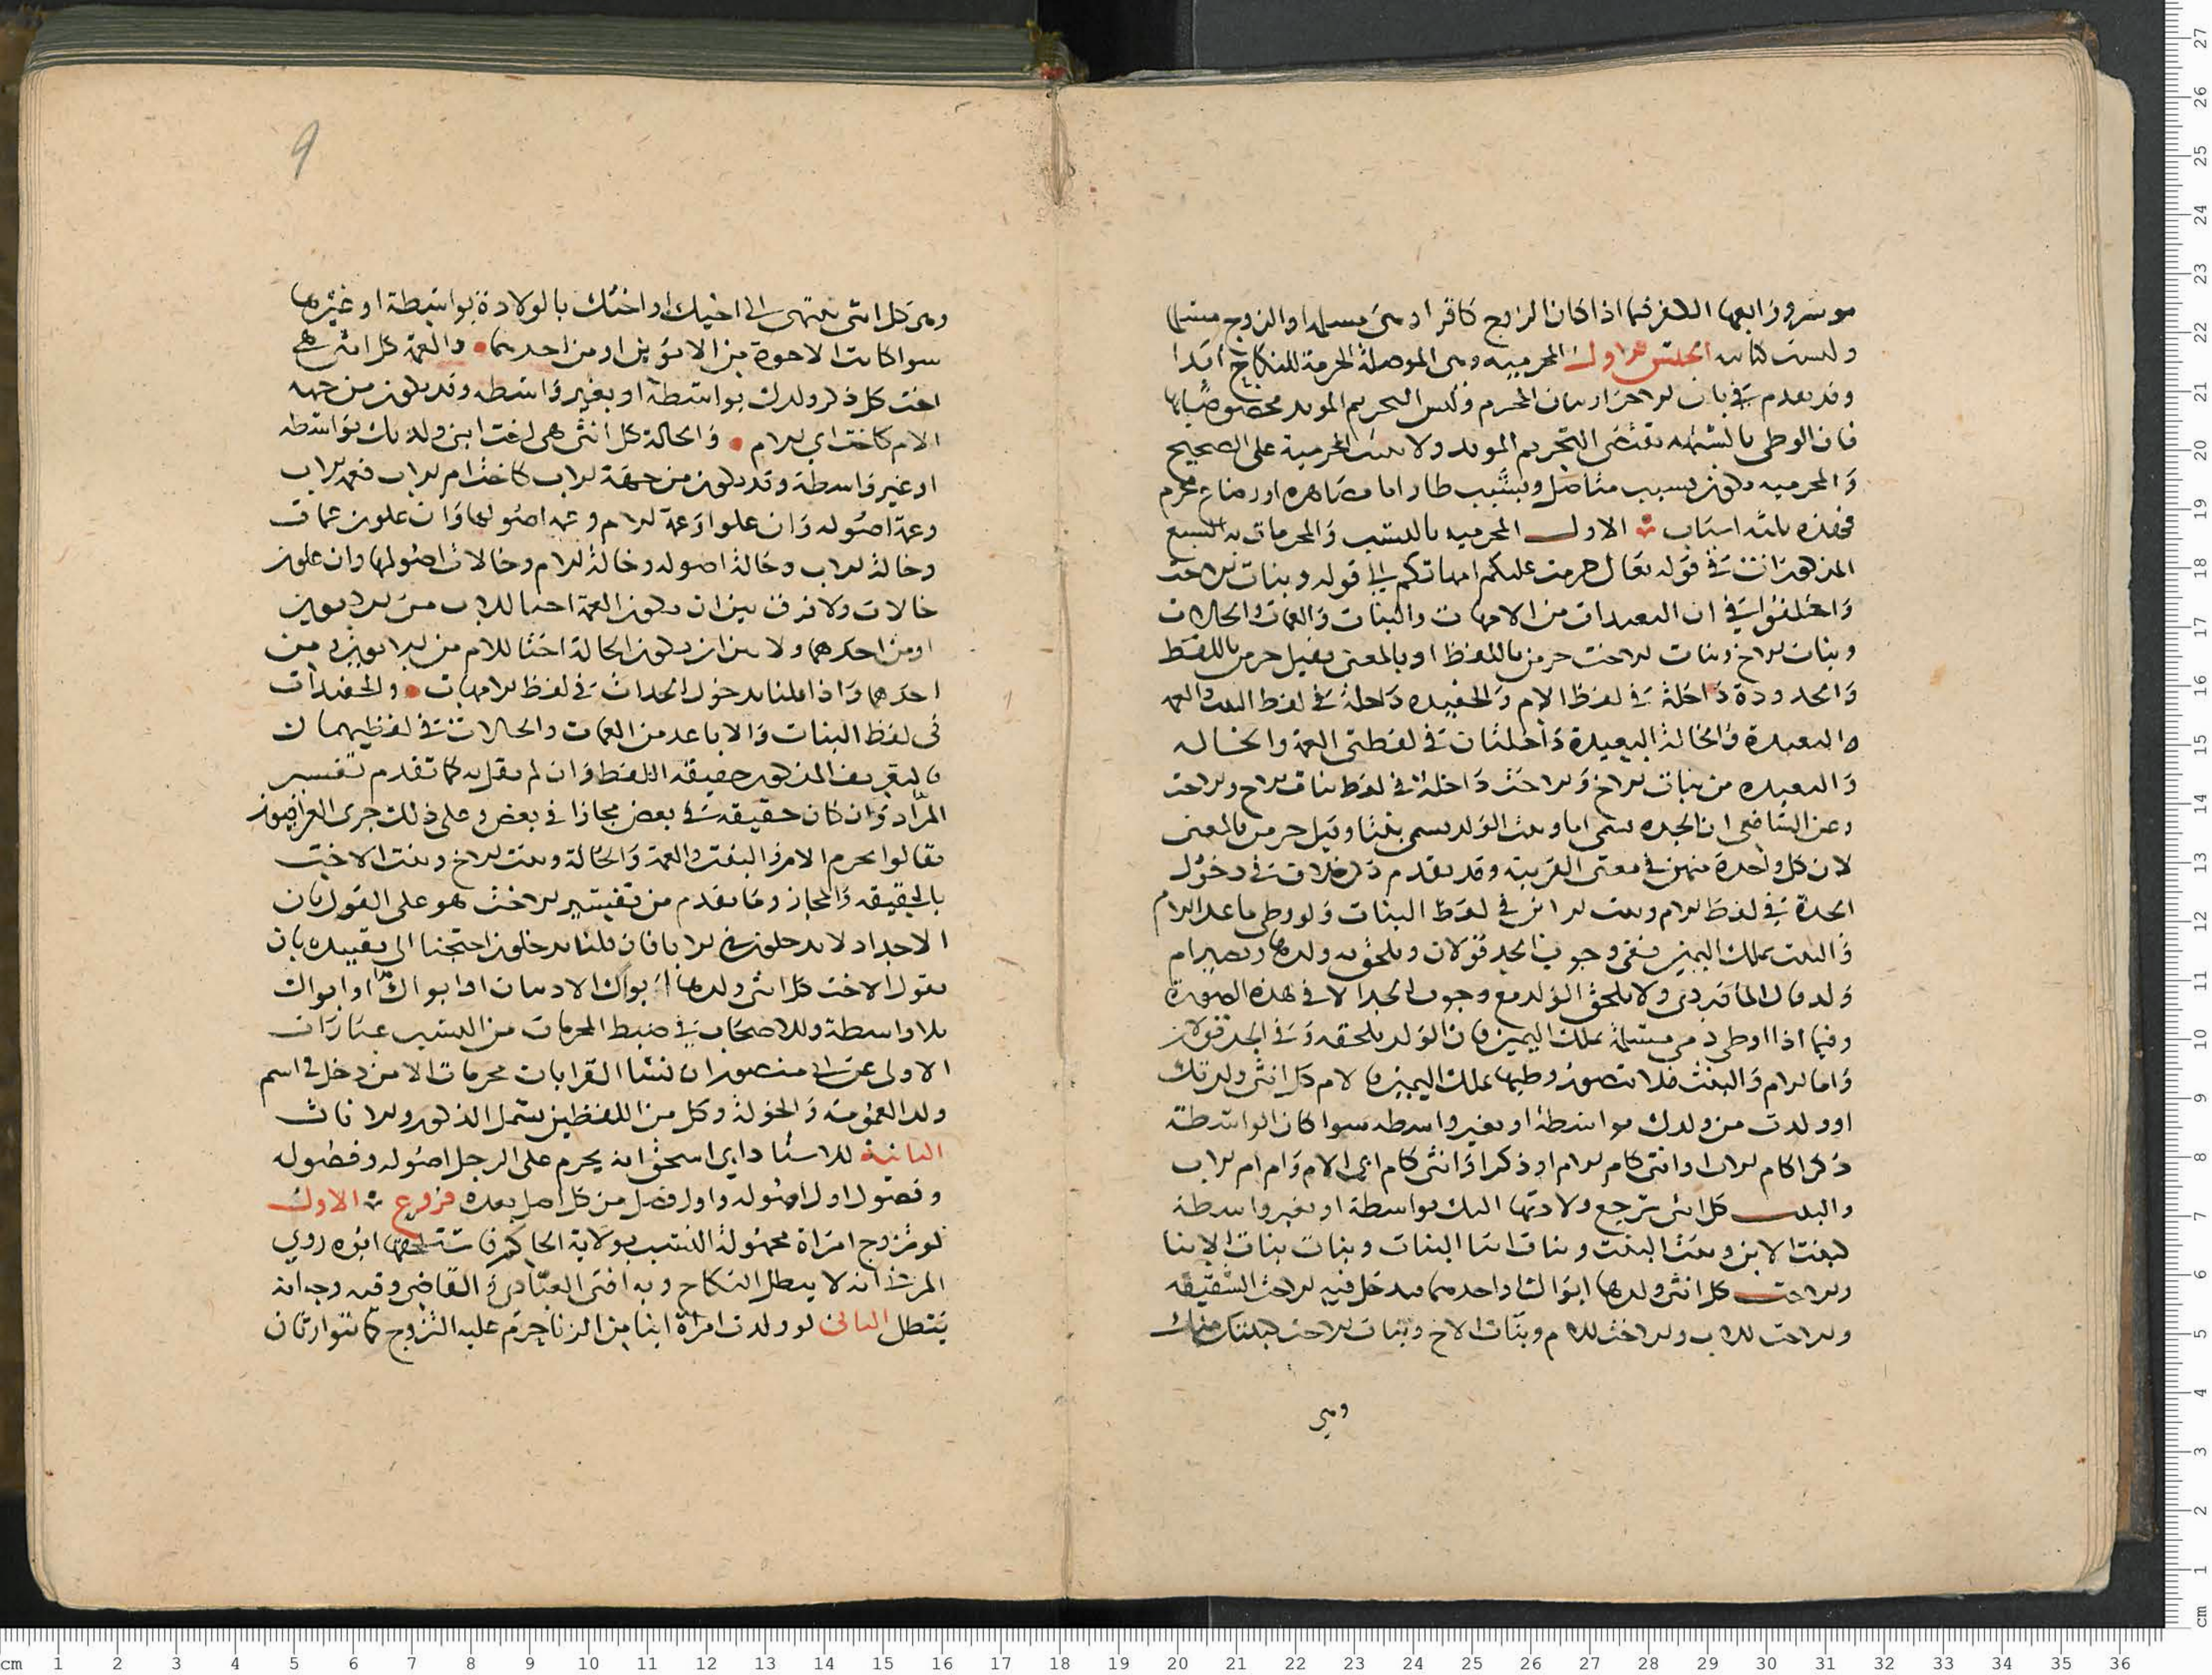 موسر ورابعها الكفر فيما اذا كان الزوج كافرا وهي مسلمة او الزوج مسلما
وليست كتابيه الجنس الاول المحرمية وهي الموصلة المحرمة للنكاح ابدا
وقد تقدم في باب الاحداث بيان المحرم وليس التحريم الموبد مخصوصا بها
فان الوطي بالشبهه يقتضي التحريم الموبد ولا يثبت المحرمية على الصحيح
والمحرميه تكون بسبب متاصل وبسبب طار اما مصاهره او رضاع محرم
فهذه ثلثة اسباب الاول المحرميه بالنسب والمحرمات به السبع
المذكورات في قوله تعالى حرمت عليكم امهاتكم الى قوله وبنات الاخت
واختلفوا في ان البعيدات من الامهات والبنات والعمات والخالات
وبنات الاخ وبنات الاخت حرمن باللفظ او بالمعنى فقيل حرمن باللفظ
والجدودة داخلة في لفظ الام والحفيده داخلة في لفظ البنت والعمه
البعيدة والخالة البعيدة داخلتان في لفظتي العمة والخاله
والبعيده من بنات الاخ والاخت داخلة في لفظ بنات الاخ والاخت
وعن الشافعي ان الجده تسمى اما وبنت الولد تسمى بنتا وقيل حرمن بالمعنى
لان كل واحدة منهن في معنى القريبه وقد تقدم ذكر خلاف في دخول
الجدة في لفظ الام وبنت الابن في لفظ البنات ولو وطي ما عدا الام
والبنت بملك اليمين ففي وجوب الحد قولان ويلحق به ولدها وتصير ام
ولد قال الماوردي ولا يلحق الولد مع وجوب الحد الا في هذه الصورة
وفيما اذا اوطي ذمي مسلمة بملك اليمين فان الولد يلحقه وفي الحد قولان
واما الام والبنت فلا يتصور وطيها بملك اليمين فالام كل انثى ولدتك
او ولدت من ولدك بواسطة او بغير واسطه سوا كان الواسطة
ذكرا كام الاب او انثى كام الام او ذكرا وانثى كام ابي الام وام ام الاب
والبنت كل انثى ترجع ولادتها اليك بواسطة او بغير واسطة
كبنت الابن وبنت البنت وبنات ابنا البنات وبنات بنات الابنا
والاخت كل انثى ولدها ابواك او احدهما فيدخل فيه الاخت الشقيقه
والاخت للاب والاخت للام وبنات الاخ وبنات الاخت كبنتك منك
وهي
وهي كل انثى تنتهي الى اخيك او اختك بالولادة بواسطة او غيرها
سوا كانت الاخوة من الابوين او من احدهما والعمة كل انثى هي
اخت كل ذكر ولدك بواسطة او بغير واسطه وقد تكون من جهه
الام كاخت ابي الام والخالة كل انثى هي اخت انثى ولدتك بواسطه
او غير واسطة وقد تكون من جهة الاب كاخت ام الاب فعمة الاب
وعمة اصوله وان علوا وعمة الام وعمة اصولها وان علون عمات
وخالة الاب وخالة اصوله وخالة الام وخالات اصولها وان علون
خالات ولا فرق بين ان تكون العمة اختا للاب من الابوين
او من احدهما ولا بين ان تكون الخالة اختا للام من الابوين او من
احدهما واذا قلنا بدخول الجدات في لفظ الامهات والحفيدات
في لفظ البنات والاباعد من العمات والخالات في لفظيهما كان
التعريف المذكور حقيقة اللفظ وان لم نقل به كما تقدم تفسير
المراد وان كان حقيقه في بعض مجازا في بعض وعلى ذلك جرى الفراضيون
فقالوا يحرم الام والبنت والعمة والخالة وبنت الاخ وبنت الاخت
بالحقيقه والمجاز وما تقدم من تفسير الاخت هو على القول بان
الاجداد لا يدخلون في الابا فان قلنا يدخلون احتجنا الى تقييده بان
نقول الاخت كل انثى ولدها ابواك الادنيان او ابواك او ابواك
بلا واسطة وللاصحاب في ضبط المحرمات من النسب عبارات
الاولى عن ابي منصور ان نسا القرابات محرمات الا من دخل في اسم
ولد العمومة والخولة وكل من اللفظين يشمل الذكور والاناث
الثانية للاستاد ابي اسحق انه يحرم على الرجل اصوله وفصوله
وفصول اول اصوله واول فصل من كل اصل بعده فروع الاول
لو تزوج امراة مجهولة النسب بولاية الحاكم فاستلحقها ابوه روي
المزني انه لا يبطل النكاح وبه افتى العبادي والقاضي وفيه وجه انه
يبطل الثاني لو ولدت امراة ابنا من الزنا حرم عليه التزوج كما يتوارثان